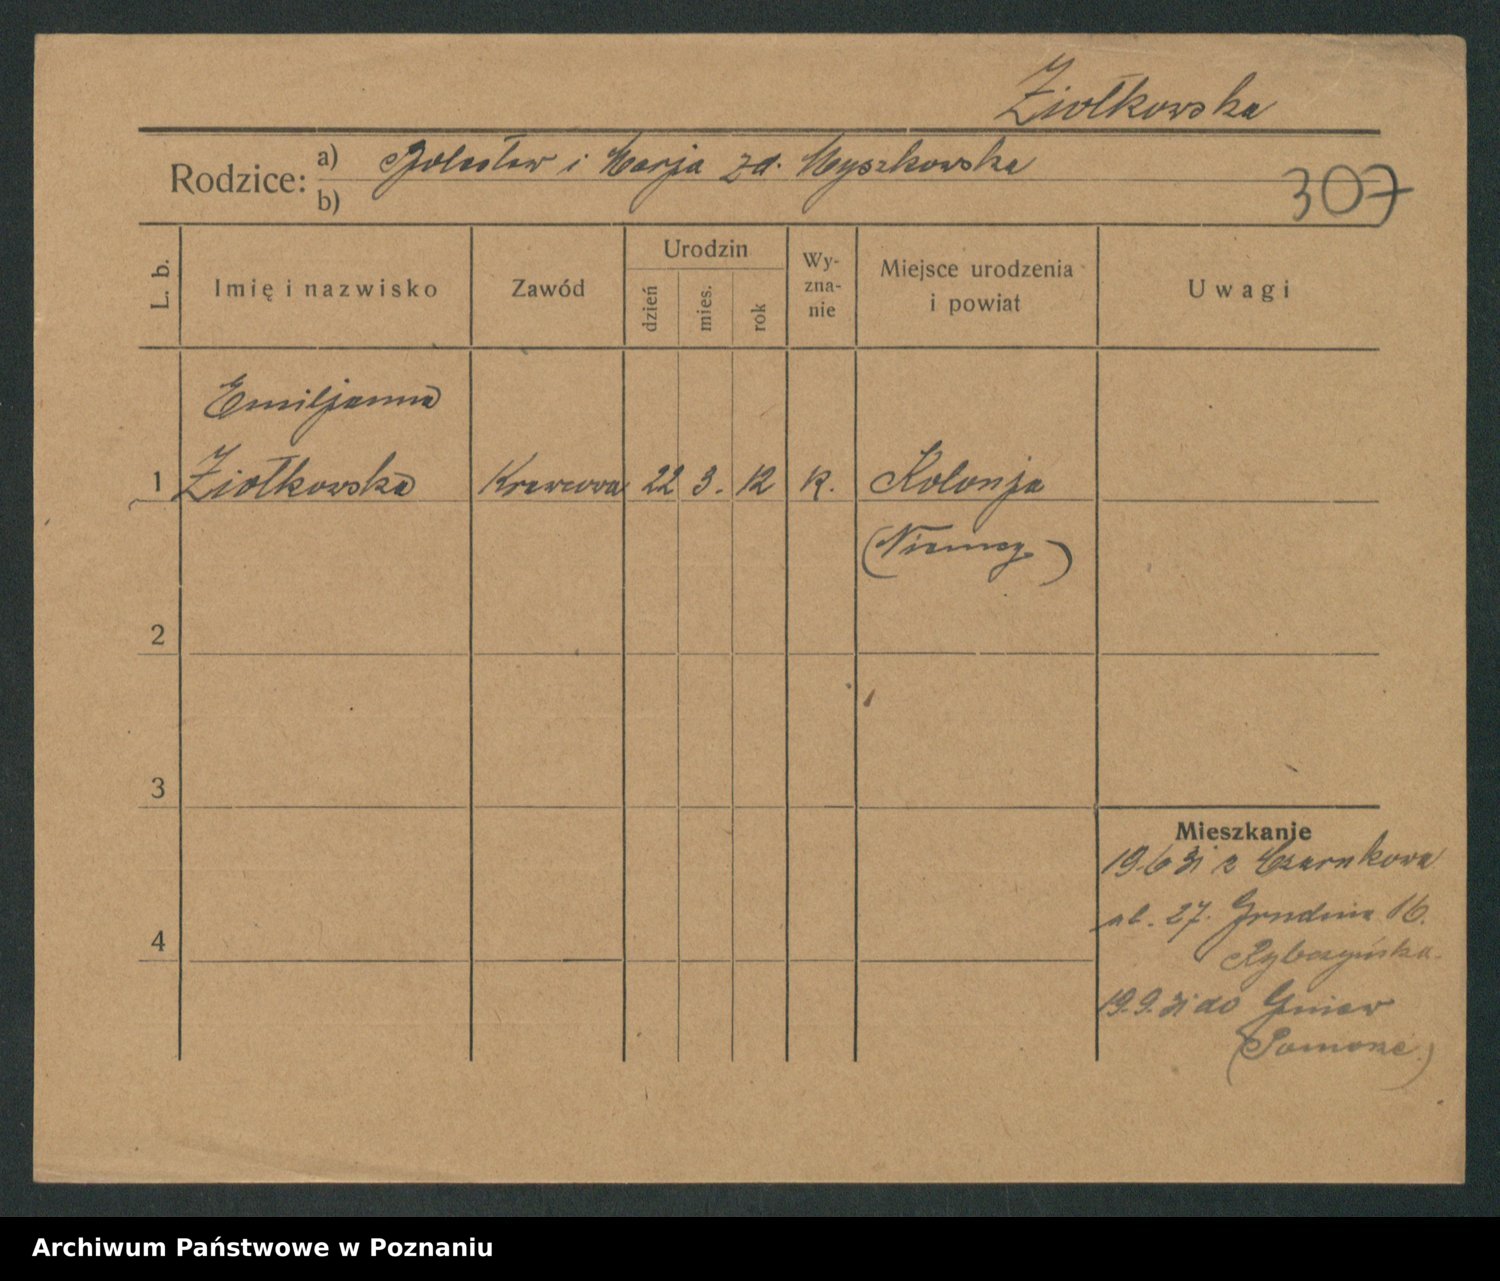 Ziołkowska
Rodzice: a) Bolesław i Marja zd. Myszkowska
b)
307
L. b. Imię i nazwisko Zawód Urodzin dzień mies. rok Wyznanie Miejsce urodzenia i powiat Uwagi
Emiljanna
1 Ziołkowska Krawcowa 22 3. 12 K. Kolonja
(Niemcy)
2
3
Mieszkanie
19.6 31 z Czarnkowa
ul. 27. Grudnia 16.
4
Rybczyńska.
19.9.31 do Gniew
(Pomorze)
Archiwum Państwowe w Poznaniu